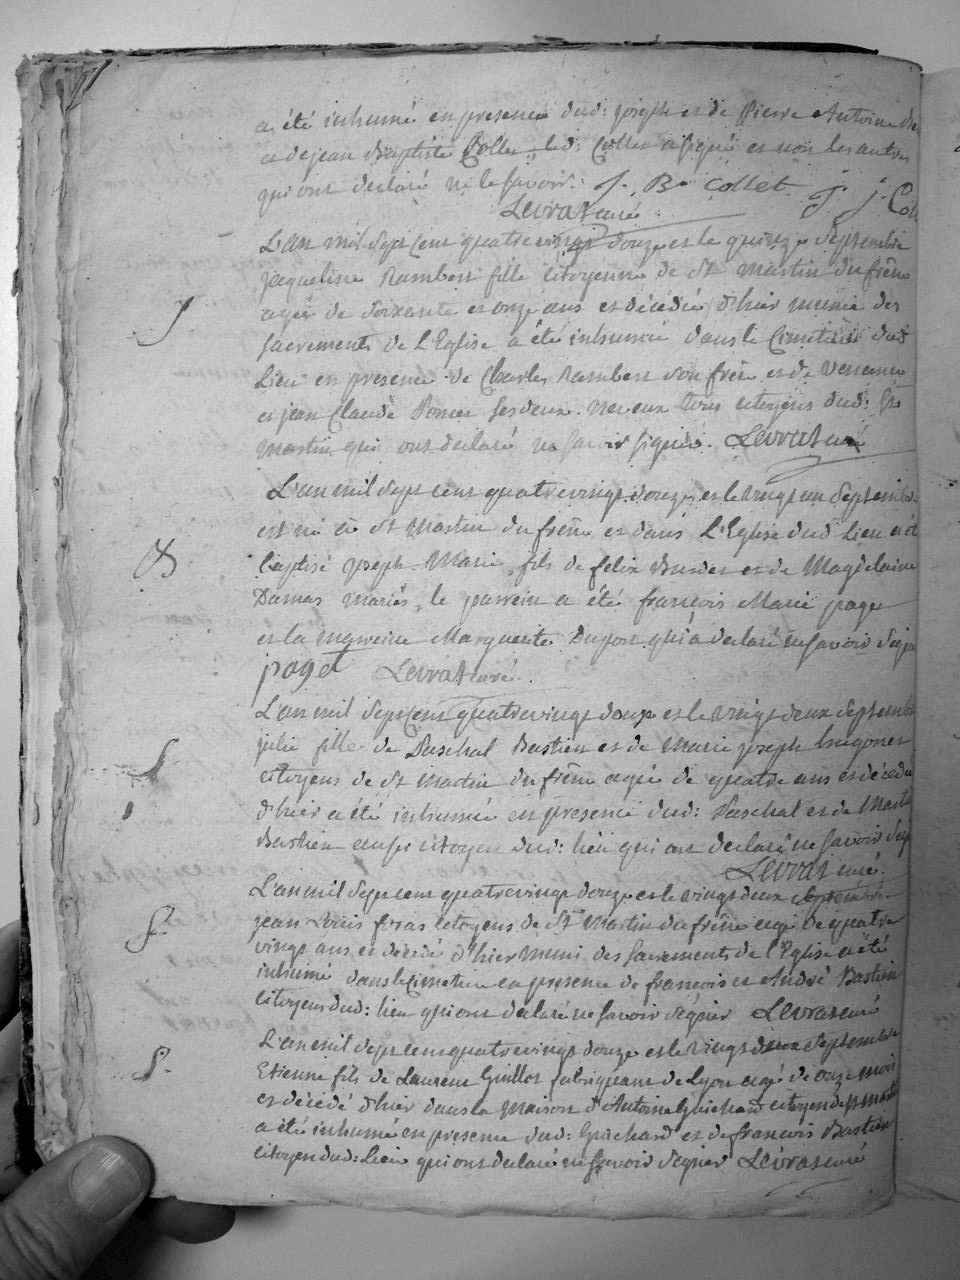 a été inhumé en presence dud: joseph et de Pierre Antoine
et de jean Baptiste Collet led: Collet a signé et non les autres
qui ont declaré ne le savoir. J. B. Collet J j Col
Levrat curé
L'an mil sept cent quatrevingt douze et le quinze septembre
jaqueline Rambert fille citoyenne de St martin du frêne
agée de soixante et onze ans et décédée d'hier munie des
sacrements de L'Eglise a été inhumée dans le Cimetière dud
Lieu en presence de Charles Rambert son frère et de
et jean Claude ses deux neveux tous citoyens dud: St
martin qui ont declaré ne savoir signer. Levrat curé
L'an mil sept cent quatrevingt douze et le vingt un septembre
est né à St Martin du frêne et dans L'Eglise dud Lieu a été
baptisé joseph-Marie, fils de felix et de Magdelaine
Dumas mariés, le parrein a été françois Marie page
et la marreine Marguerite Dupont qui a declaré ne savoir signer
paget Levrat curé.
L'an mil sept cent quatrevingt douze et le vingt deux septembre
julie fille de Paschal Bastien et de Marie joseph
citoyens de St Martin du frêne agée de quatre ans et décédée
d'hier a été inhumée en presence dud: Paschal et de
Bastien aussi citoyen dud: lieu qui ont declaré ne savoir sign
Levrat curé.
L'an mil sept cent quatrevingt douze et le vingt deux septembre
jean Louis foras citoyens de St Martin du frêne agé de quatre
vingt ans et décédé d'hier muni des sacrements de l'Eglise a été
inhumé dans le Cimetiere en presence de francois et André Bastien
citoyens dud: lieu qui ont declaré ne savoir signer Levrat curé
L'an mil sept cent quatrevingt douze et le vingt deux septembre
Etienne fils de Laurent Guillot fabriquant de Lyon agé de onze mois
et décédé d'hier dans la maison d'Antoine Guichard citoyen de St martin
a été inhumé en presence dud: Guichard et de francois Bastien
citoyen dud: Lieu qui ont declaré ne savoir signer Levrat curé